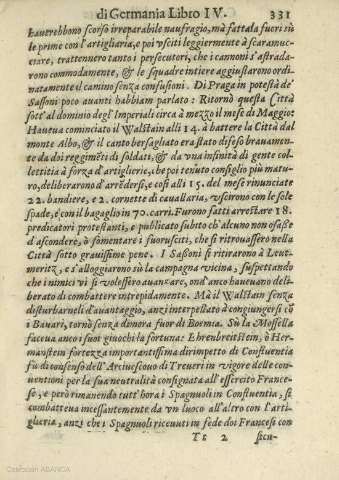 di Germania Libro IV. 331
haverebbono scorso irreparabile naufragio, mà fattala fuori sù
le prime con l'artigliaria, e poi vsciti leggiermente à scaramuc-
ciare, trattennero tanto i persecutori, che i cannoni s'astrada-
rono commodamente, & le squadre intiere aggiustarono ordi-
natamente il camino senza confusioni. Di Praga in potestà de'
Sassoni poco auanti habbiam parlato: Ritornò questa Città
sott'al dominio degl'Imperiali circa à mezzo il mese di Maggio:
Haueua cominciato il Walstain alli 14. à battere la Città dal
monte Albo, & il canto bersagliato era stato difeso brauamente
da doi reggimēti di soldati, & da vna infinità di gente col-
lettitia à forza d'artiglierie, be poi tenuto consiglio più matu-
ro, deliberarono d'arrēdersi, e così alli 15. del mese rinunciate
22. bandiere, e 2. cornette di cauallaria, vscirono con le sole
spade, e con il bagaglio in 70. carri. Furono fatti arrestare 18.
predicatori protestanti, e publicato subito ch'alcuno non osasse
d'ascondere, ò fomentare i fuorusciti, che si ritrouassero nella
Città sotto grauissime pene. I Sassoni si ritirarono à Leut-
meritz, e s'alloggiarono sù la campagna vicina, suspettando
che i nimici vi si volessero auanzare, ond'anco haueuano deli-
berato di combattere intrepidamente. Mà il Walstain senza
disturbarueli d'auantaggio, anzi interpellato à congiungersi cō
i Bauari, tornò senza dimora fuor di Boemia. Sù la Mosella
faceua anco i suoi giuochi la fortuna: Ehrenbreitstein, ò Her-
manstein fortezza importantissima dirimpetto di Confluentia
fù di consenso dell'Arciuescouo di Treueri in vigore delle con-
uentioni per la sua neutralità consignata all'essercito France-
se, e però rimanendo tutt'hora i Spagnuoli in Confluentia, si
combatteua incessantemente da vn luoco all'altro con l'arti-
glieria, anzi che i Spagnoli riceuuti in fede doi Francesi con
Tt 2 sicu-
Colección ABANCA